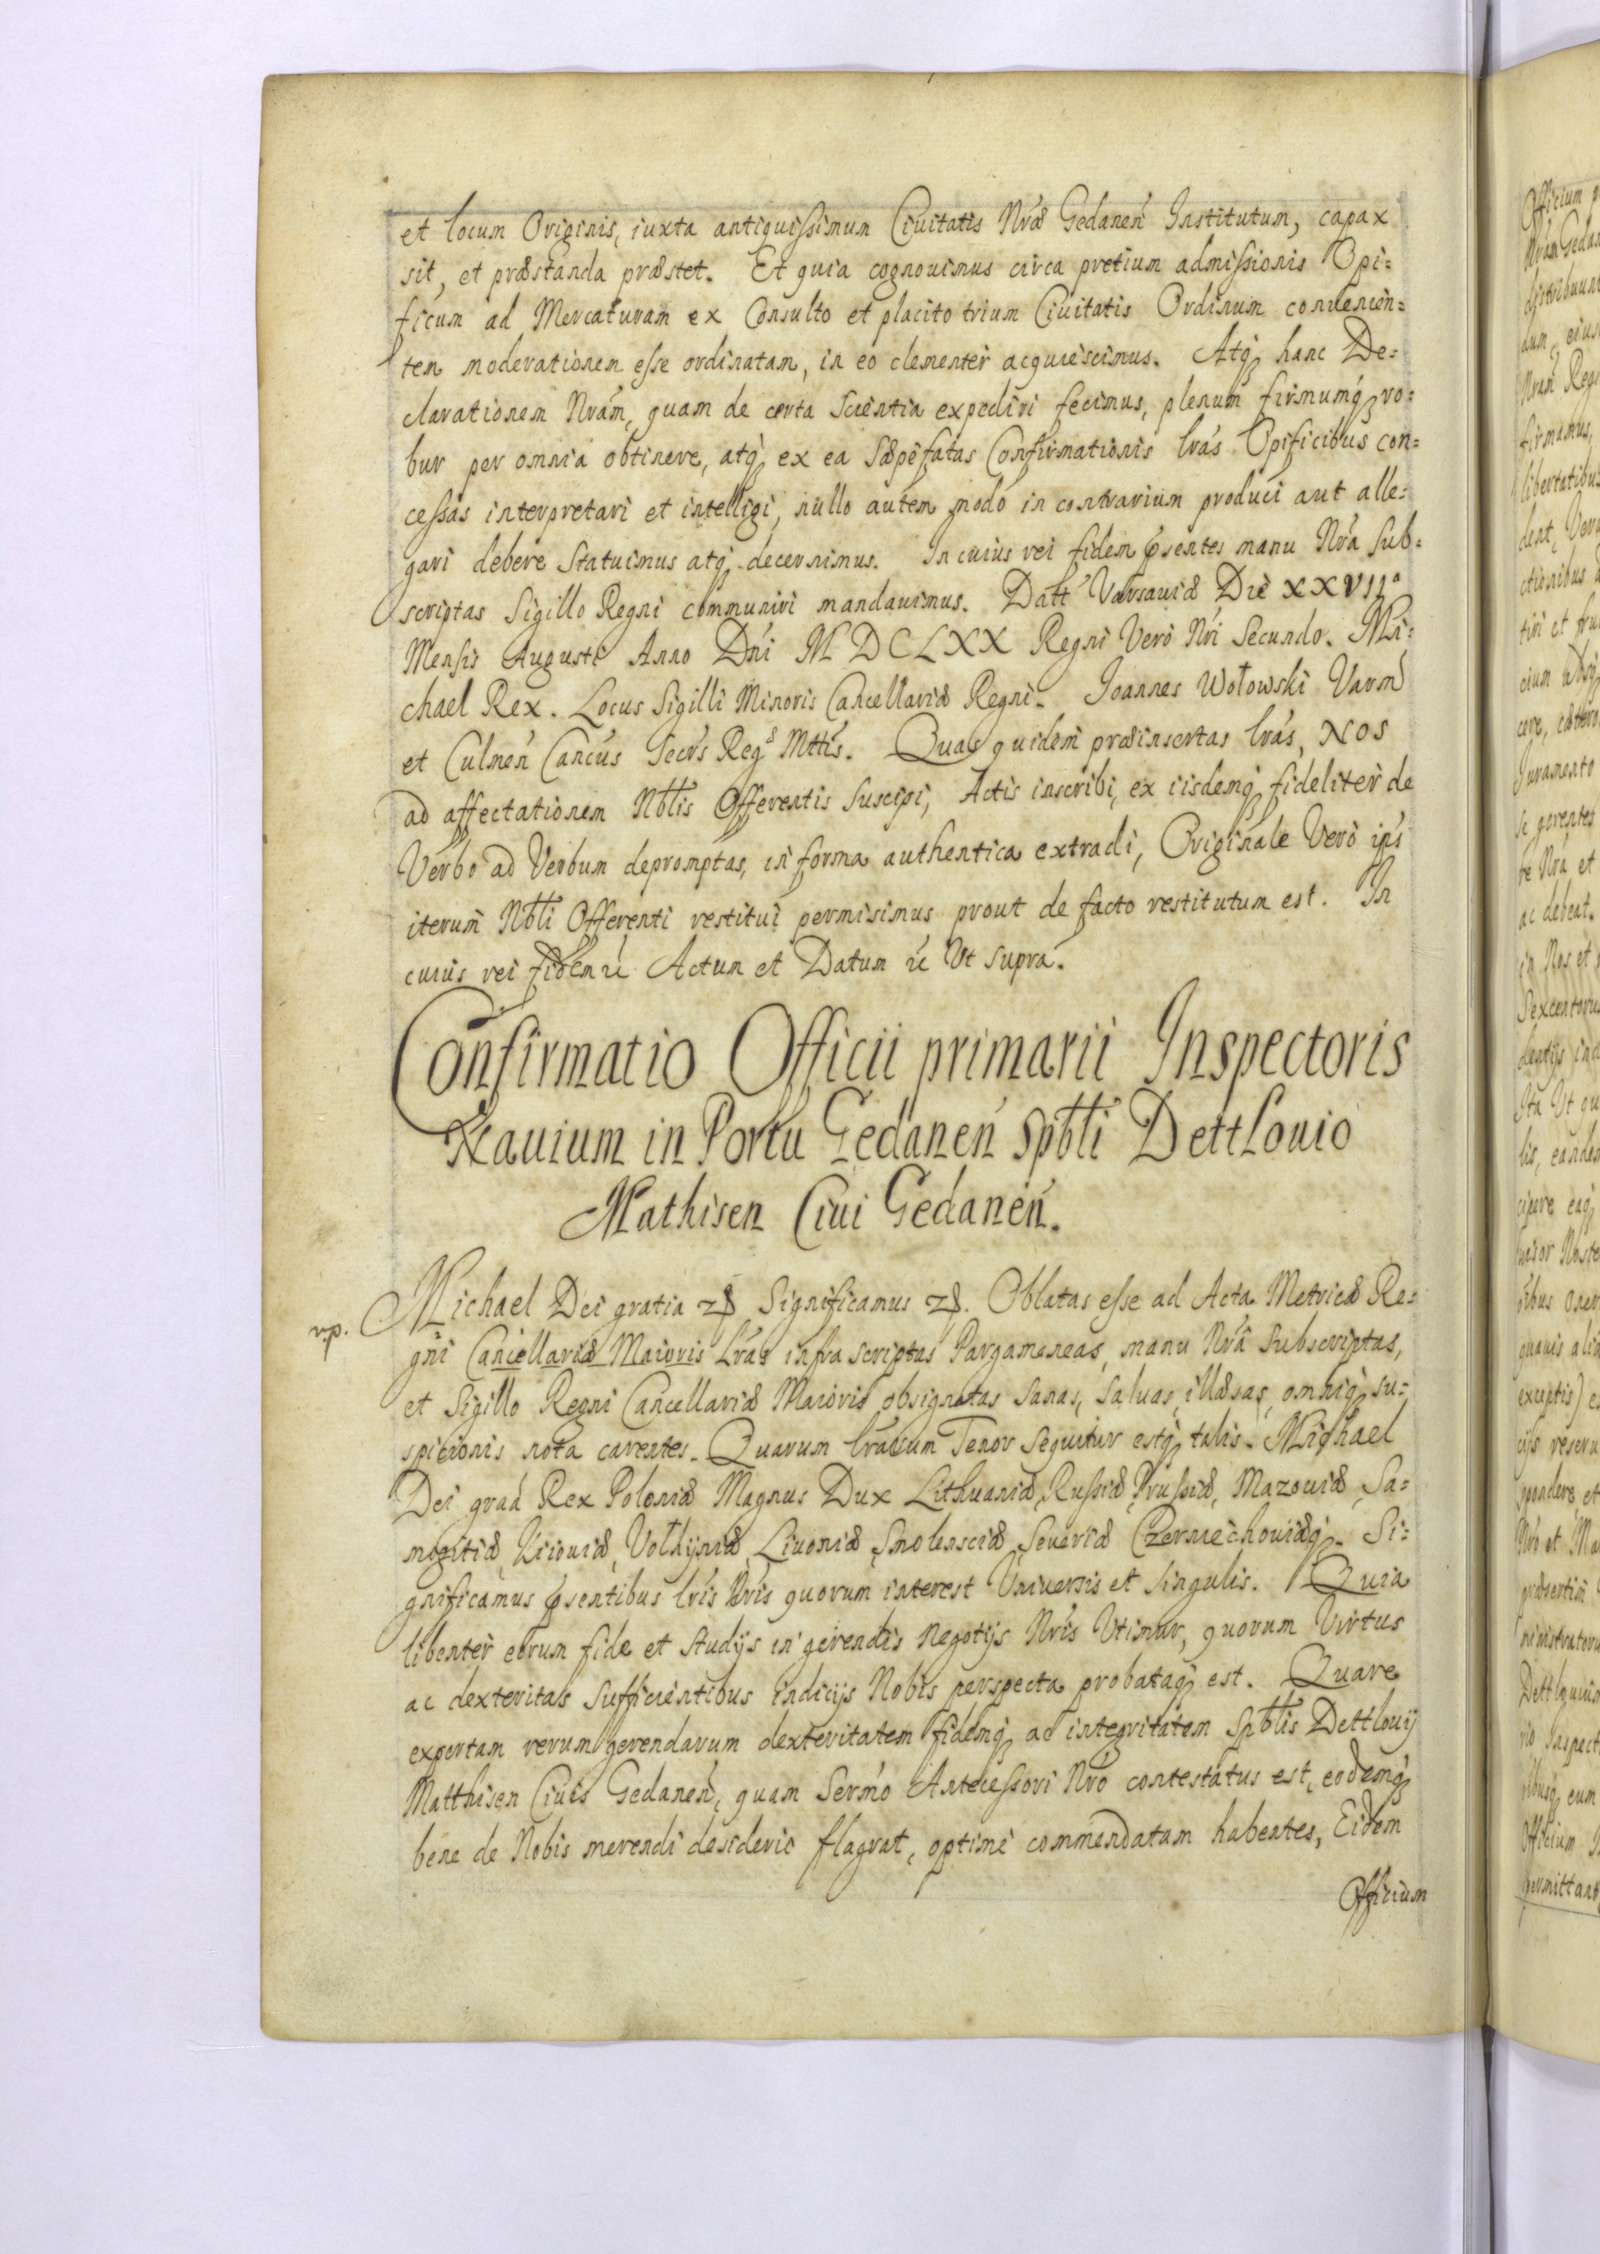 et locum Originis, iuxta antiquissimum Civitatis Nræ Gedanen Institutum, capax
sit, et præstanda præstet. Et quia cognouimus circa pretium admissionis Opi-
ficum ad Mercaturam ex Consulto et placito trium Ciuitatis Ordinum conuenien-
tem moderationem esse ordinatam, in eo clementer acquiescimus. Atq hanc De-
clarationem Nram, quam de certa scientia expediri fecimus, plenum firmumq ro-
bur per omnia obtinere, atq ex ea sæpefatas Confirmationis lras Opificibus con-
cessas interpretari et intelligi, nullo autem modo in contrarium produci aut alle-
gari debere statuimus atq decernimus. In cuius rei fidem pñtes manu Nra sub-
scriptas Sigillo Regni communiri mandauimus. Datt Varsauiæ Die XXVIIa
Mensis Augusti Anno Dni MDCLXX Regni Vero Nri Secundo. Mi-
chael Rex. Locus Sigilli Minoris Cancellariæ Regni. Joannes Wołowski Varm
et Culmen Cancus Secrs Regs Mttis. Quas quidem præinsertas lras, NOS
ad affectationem Nblis Offerentis Suscipi, Actis inscribi, ex iisdemq fideliter de
Verbo ad Verbum depromptas, in forma authentica extradi, Originale Vero ips
iterum Nbli Offerenti restitui permisimus prout de facto restitutum est. In
cuius rei fidem &c Actum et Datum &c Vt supra.
Confirmatio Officii primarii Inspectoris
Nauium in Portu Gedanen Spbli Dettlouio
Mathisen Ciui Gedanen.
Michael Dei gratia &c Significamus &c. Oblatas esse ad Acta Metricæ Re-
gni Cancellariæ Maioris Lras infra scriptas Pargameneas, manu Nra subscriptas,
et Sigillo Regni Cancellariæ Maioris obsignatas sanas, saluas, illæsas, omniq su-
spicionis nota carentes. Quarum lrarum Tenor sequitur estq talis. Michael
Dei graa Rex Poloniæ Magnus Dux Lithuaniæ, Russiæ, Prussiæ, Mazouiæ, Sa-
mogitiæ, Kiiouiæ, Volhyniæ, Liuoniæ, Smolensciæ, Seueriæ Czerniechouiæq. Si-
gnificamus pñtibus lris Nris quorum interest Vniuersis et singulis. Quia
libenter eorum fide et studijs in gerendis negotijs Nris Vtimur, quorum Virtus
ac dexteritas sufficientibus indicijs Nobis perspecta probataq est. Quare
expertam rerum gerendarum dexteritatem fidemq ac integritatem Spblis Dettlouij
Matthisen Ciuis Gedanen, quam Sermo Antecessori Nro contestatus est, eodemq
bene de Nobis merendi desiderio flagrat, optime commendatam habentes, Eidem
Officium